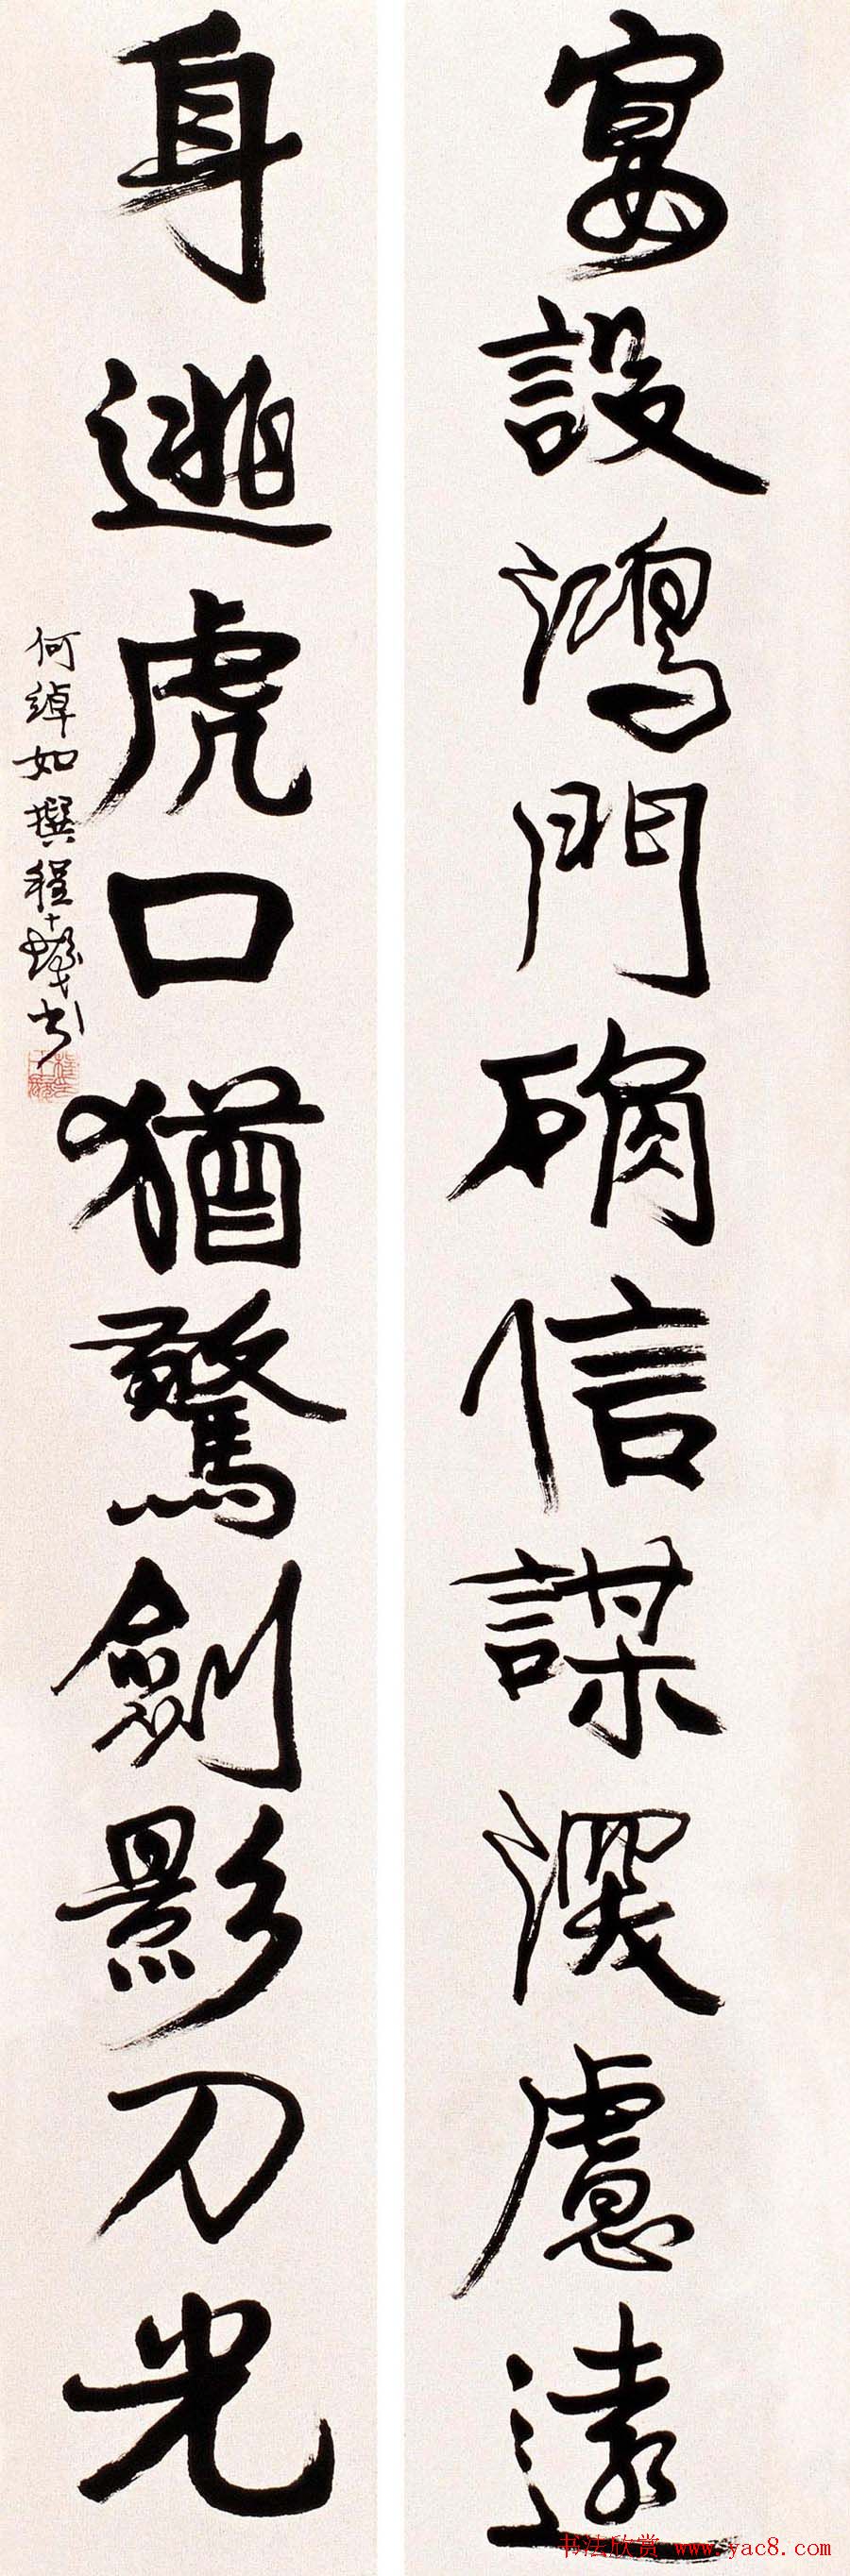 宴設鴻門确信謀深慮遠
身逃虎口猶驚劍影刀光
何綽如撰程十髮书
书法欣赏 www.yac8.com